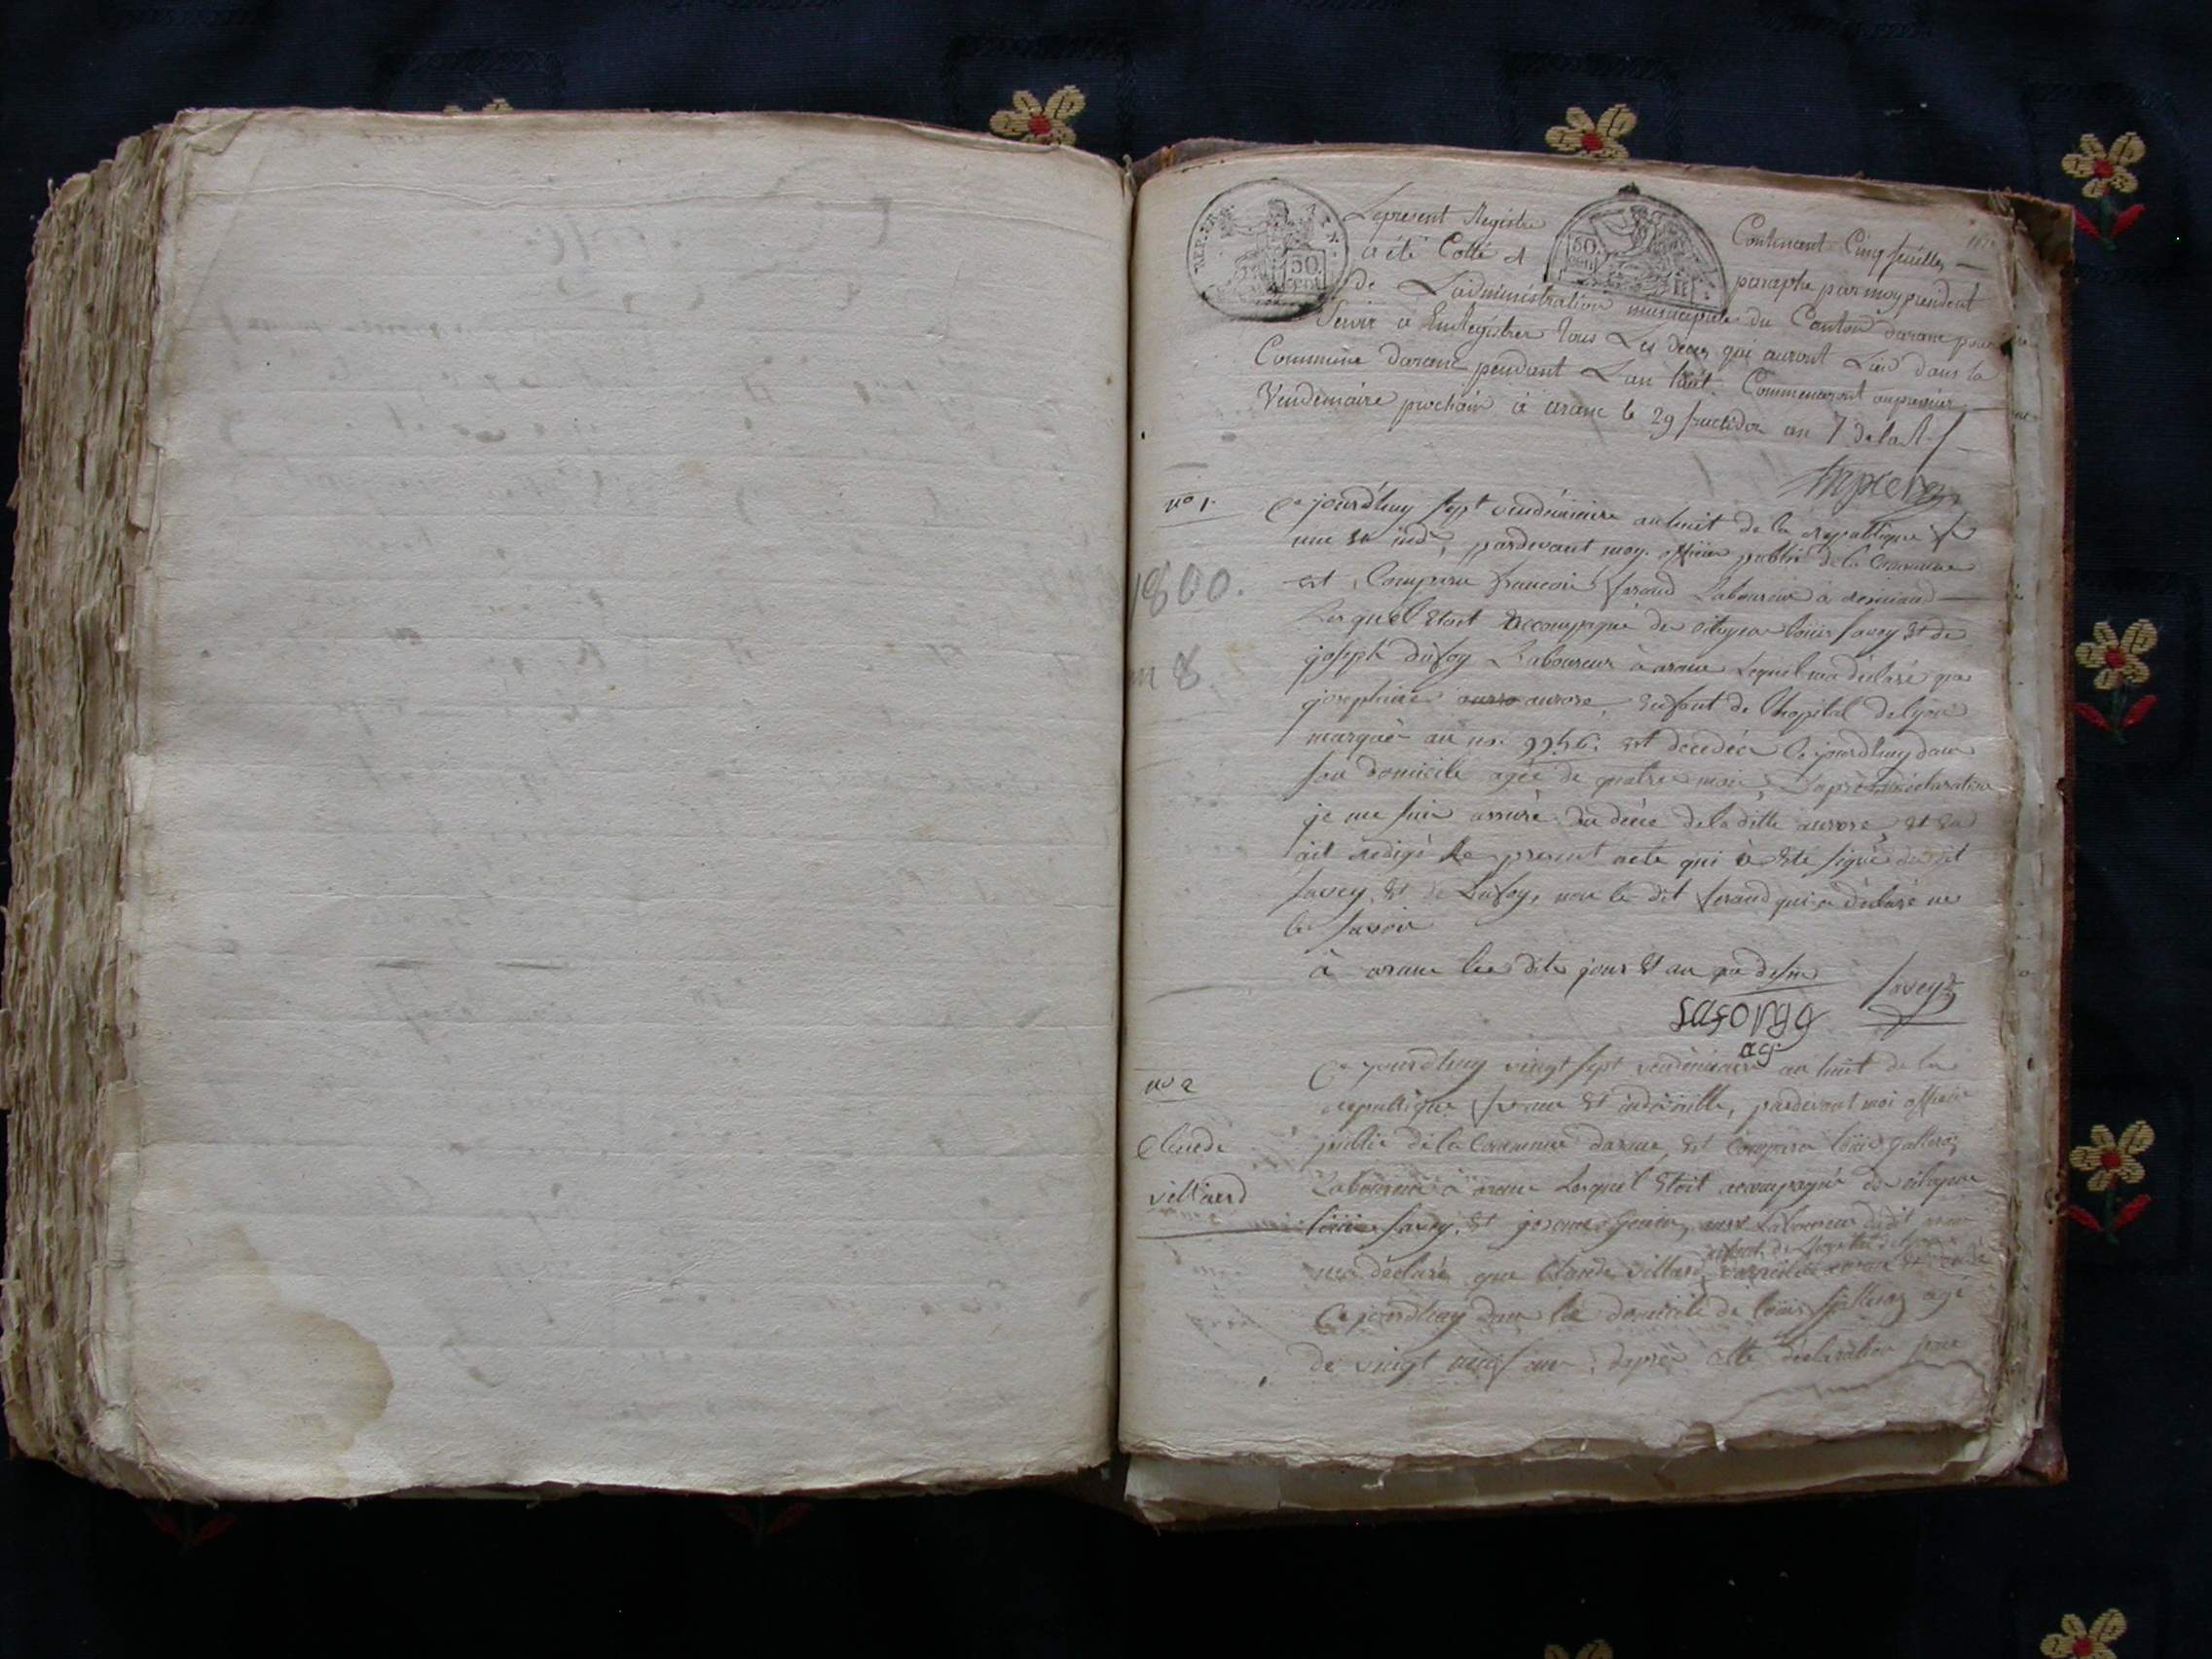 REP. FRA.
50
CENT
50
CEN
Le present Registre Contenant Cinq feuilles
a été Cotté et paraphé par moy president
de L'administration municipale du Canton daranc pour
Servir a Enregistrer tous Les deces qui auront Lieu dans la
Commune daranc pendant L'an huit Commencant au premier
Vendemaire prochain a aranc le 29 fructidor an 7 de la R f
no 1.
Ce jourdhuy sept vendémiaire an huit de la republique f
une et ind, pardevant moy officier public de la Commune
est Comparu francois feraud Laboureur à
Lequel Etoit accompagné de citoyen loüis savey Et de
joseph dufoy Laboureur à aranc Lequel ma déclaré que
josephine auro aurore, Enfant de lhopital de lyon
marqué au no. est decedée Ce jourdhuy dans
son domicile agée de quatre mois, Dapres déclaration
je me suis assuré du décès de la ditte aurore, Et En
ait redigé le present acte qui à Eté signé du dit
savey Et de Dufoy, non le dit feraud qui a déclaré ne
le savoir
à aranc les dits jour Et an que dessus
savey
1800.
an 8
no 2
Claude
villiard
Ce jourdhuy vingt sept vendémiaire an huit de la
republique f une Et indivisible, pardevant moi officier
public de la Commune daranc, Est Comparu loüis
Laboureur à aranc Lequel Etoit accompagné de citoyen
loüis savey, Et jerome Laboureur
ma déclaré que Claude villard enfant de lhopital de
Ce jourdhuy dans le domicile de loüis agé
de vingt neuf ans, dapres cette déclaration